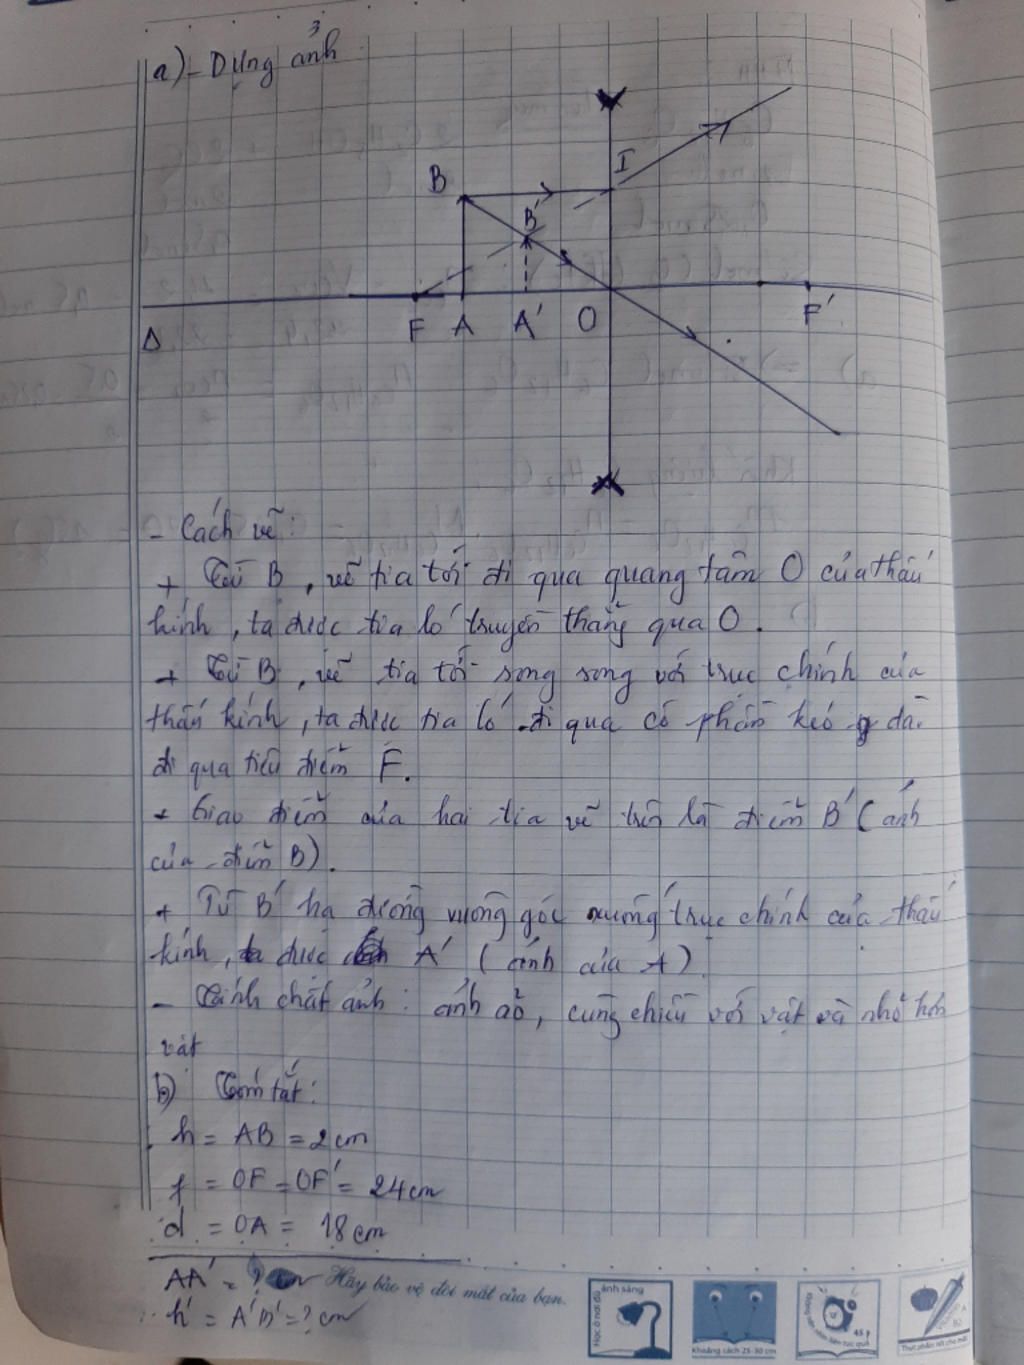 a) - Dựng ảnh
I
B
B'
F A A' O F'
Δ
- Cách vẽ:
+ Từ B, vẽ tia tới đi qua quang tâm O của thấu
kính, ta được tia ló truyền thẳng qua O.
+ Từ B, vẽ tia tới song song với trục chính của
thấu kính, ta được tia ló đi qua có phần kéo dài
đi qua tiêu điểm F.
+ Giao điểm của hai tia vẽ trên là điểm B' (ảnh
của điểm B).
+ Từ B' hạ đường vuông góc xuống trục chính của thấu
kính, ta được A' (ảnh của A).
- Tính chất ảnh: ảnh ảo, cùng chiều với vật và nhỏ hơn
vật
b) Tóm tắt:
h = AB = 2cm
f = OF = OF' = 24cm
d = OA = 18cm
AA' = ? cm Hãy bảo vệ đôi mắt của bạn.
h' = A'B' = ? cm
Học ở nơi đủ ánh sáng
Khoảng cách 25-30 cm
45 p
Thực phẩm tốt cho mắt